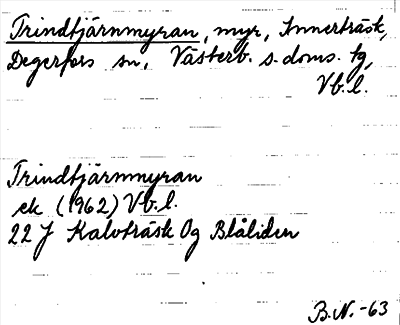 Trindtjärnmyran, myr, Innerträsk,
Degerfors sn, Västerb. s. doms. tg,
Vb. l.
Trindtjärmmyran
ek (1962) Vb. l.
22 J Kalvträsk Og Blåliden
B.N. -63